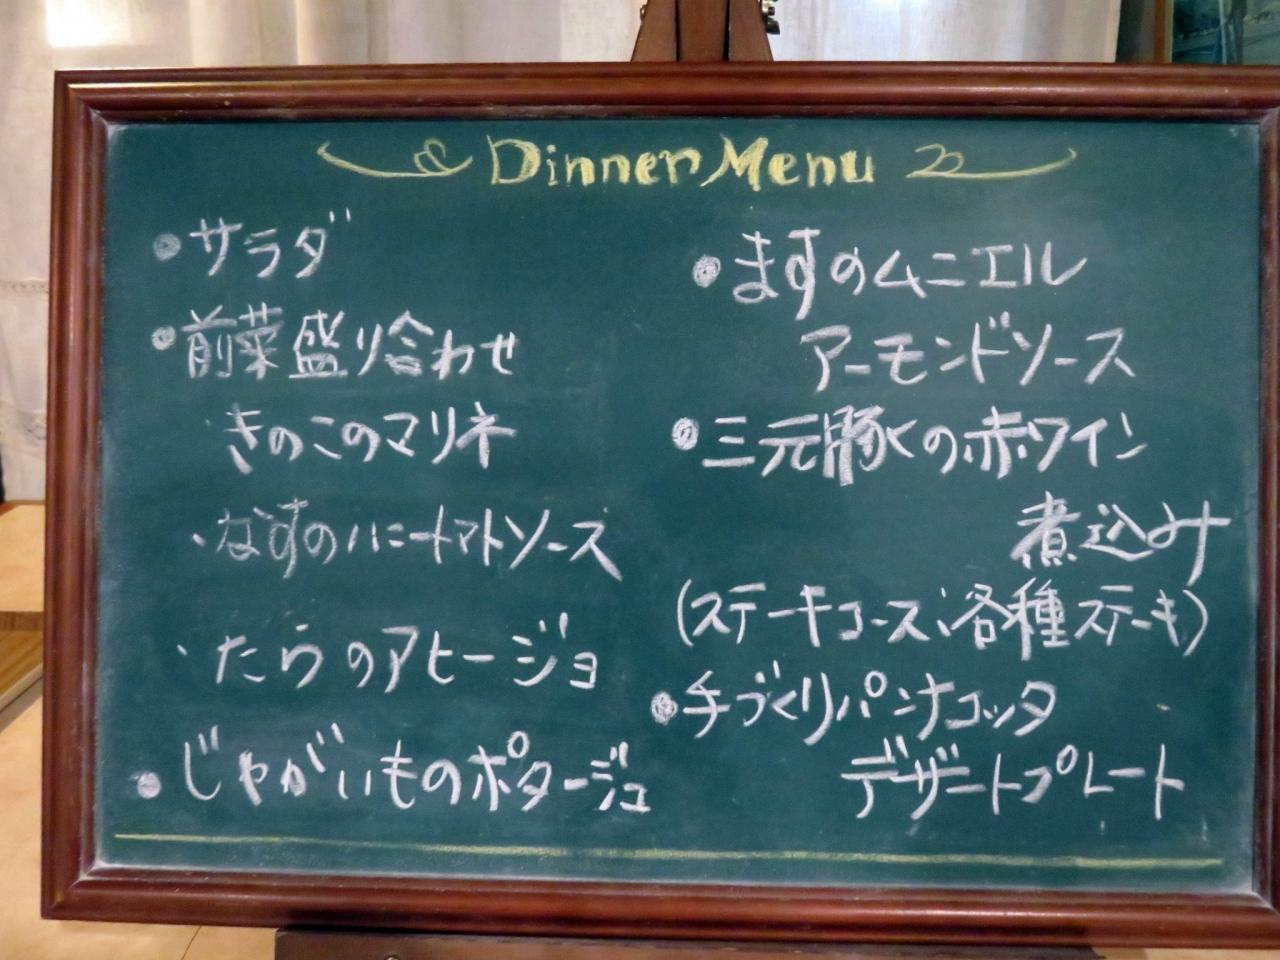 Dinner Menu
●サラダ
●前菜盛り合わせ
きのこのマリネ
・なすのハニートマトソース
・たらのアヒージョ
●じゃがいものポタージュ
●ますのムニエル
アーモンドソース
●三元豚の赤ワイン
煮込み
(ステーキコース:各種ステーキ)
●手づくりパンナコッタ
デザートプレート